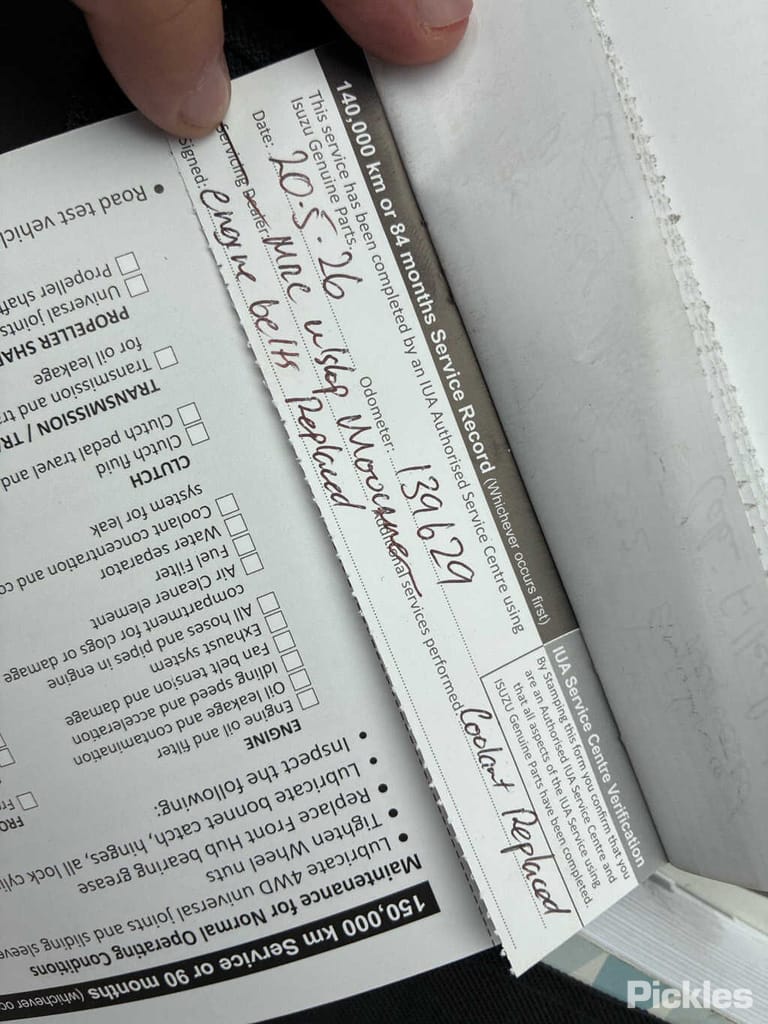 140,000 km or 84 months Service Record (Whichever occurs first)
This service has been completed by an IUA Authorised Service Centre using
Isuzu Genuine Parts.
Date: 20.5.26 Odometer: 139629
Servicing Dealer: MRC
Additional services performed: Coolant Replaced
Signed: engine belts Replaced
IUA Service Centre Verification
By Stamping this form you confirm that you
are an Authorised IUA Service Centre and
that all aspects of the IUA Service using
ISUZU Genuine Parts have been completed
150,000 km Service or 90 months (whichever oc
Maintenance for Normal Operating Conditions
• Lubricate 4WD universal joints and sliding sleev
• Tighten Wheel nuts
• Replace Front Hub bearing grease
• Lubricate bonnet catch, hinges, all lock cylin
• Inspect the following:
ENGINE
Engine oil and filter
Oil leakage and contamination
Idling speed and acceleration
Fan belt tension and damage
Exhaust system
All hoses and pipes in engine
compartment for clogs or damage
Air Cleaner element
Fuel Filter
Water separator
Coolant concentration and co
system for leak
CLUTCH
Clutch fluid
Clutch pedal travel and
TRANSMISSION / TRA
Transmission and tra
for oil leakage
PROPELLER SHA
Universal joints
Propeller shaf
• Road test vehicl
FRO
Fr
Pickles